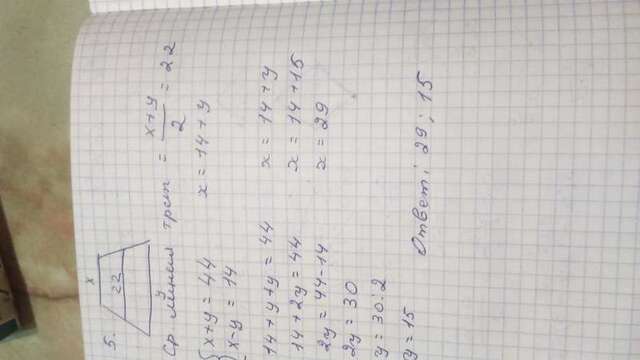 x
5. 22
y
Ср линия трап = x+y/2 = 22
{ x+y = 44 x = 14 + y
x-y = 14
14 + y + y = 44 x = 14 + y
14 + 2y = 44 x = 14 + 15
2y = 44 - 14 x = 29
2y = 30
y = 30:2
y = 15 Ответ: 29; 15